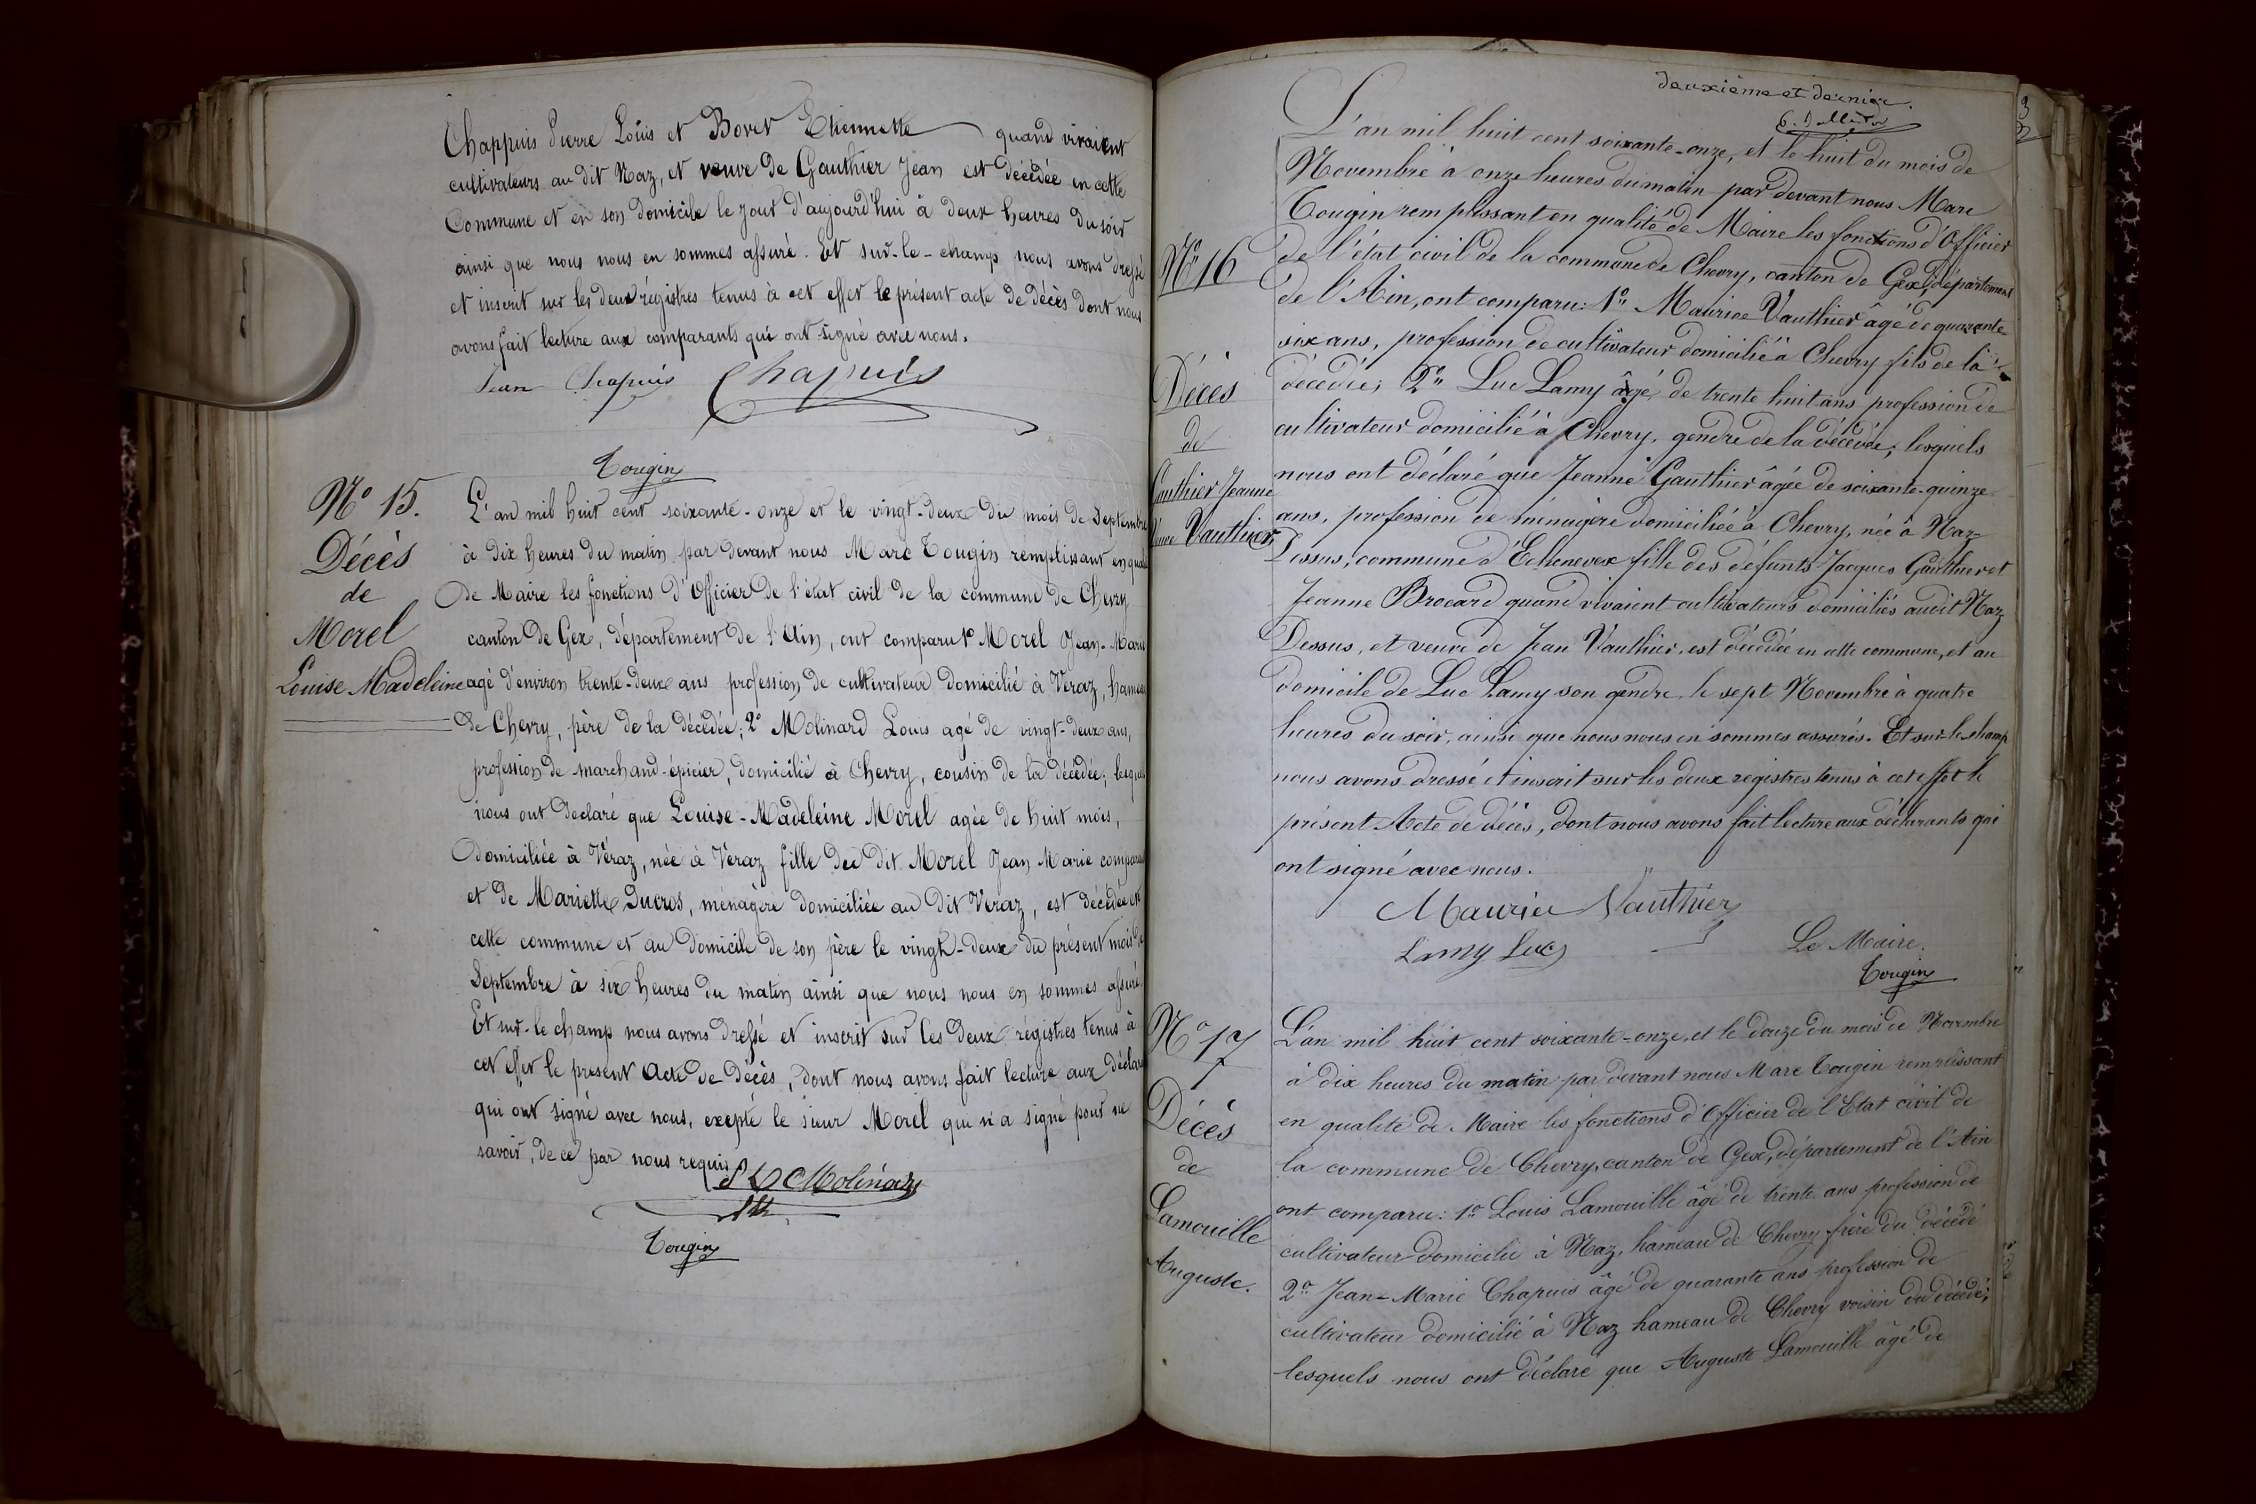 Chappuis Pierre Louis et Bovet Etiennette quand vivaient
cultivateurs au dit Naz, et veuve de Gauthier Jean est décédée en cette
Commune et en son domicile le jour d'aujourd'hui à deux heures du soir
ainsi que nous nous en sommes assuré. Et sur-le-champs nous avons dressé
et inscrit sur les deux régistres tenus à cet effet le présent acte de décès dont nous
avons fait lecture aux comparants qui ont signé avec nous.
Jean Chapuis Chapuis
Tougin
N° 15.
Décès
de
Morel
Louise Madeleine
L'an mil huit cent soixante-onze et le vingt-deux du mois de Septembre
à dix heures du matin par devant nous Marc Tougin remplissant en qual
de Maire les fonctions d'Officier de l'état civil de la commune de Chevry
canton de Gex, département de l'Ain, ont comparu 1° Morel Jean-Marie
agé d'environ trente-deux ans profession de cultivateur domicilié à Véraz, hameau
de Chevry, père de la décédée; 2° Molinard Louis agé de vingt-deux ans,
profession de marchand-épicier, domicilié à Chevry, cousin de la décédée; lesquels
nous ont déclaré que Louise-Madeleine Morel agée de huit mois,
domiciliée à Véraz, née à Veraz fille du dit Morel Jean Marie compar
et de Mariette Ducros, ménagère domiciliée au dit Veraz, est décédée en
cette commune et au domicile de son père le vingt-deux du présent mois de
Septembre à six heures du matin ainsi que nous nous en sommes assuré.
Et sur-le champ nous avons dressé et inscrit sur les deux régistres tenus à
cet effet le présent Acte de Décès, dont nous avons fait lecture aux déclar
qui ont signé avec nous, exepté le sieur Morel qui n'a signé pour ne
savoir, de ce par nous requis
Molinard
Tougin
deuxième et dernier.
N° 16
Décès
de
Gauthier Jeanne
Veuve Vauthier
L'an mil huit cent soixante-onze, et le huit du mois de
Novembre à onze heures du matin par devant nous Marc
Tougin remplissant en qualité de Maire les fonctions d'Officier
de l'état civil de la commune de Chevry, canton de Gex, département
de l'Ain, ont comparu: 1° Maurice Vauthier âgé de quarante
six ans, profession de cultivateur domicilié à Chevry fils de la
décédée; 2° Luc Lamy âgé de trente huit ans profession de
cultivateur domicilié à Chevry, gendre de la décédée; lesquels
nous ont déclaré que Jeanne Gauthier âgée de soixante-quinze
ans, profession de ménagère domiciliée à Chevry, née à Naz-
Dessus, commune d'Echenevex fille des défunts Jacques Gauthier et
Jeanne Brocard quand vivaient cultivateurs domiciliés audit Naz
Dessus, et veuve de Jean Vauthier, est décédée en cette commune, et au
domicile de Luc Lamy son gendre, le sept Novembre à quatre
heures du soir, ainsi que nous nous en sommes assurés. Et sur-le-champ
nous avons dressé et inscrit sur les deux registres tenus à cet effet le
présent Acte de décès, dont nous avons fait lecture aux déclarants qui
ont signé avec nous.
Maurice Vauthier
Lamy Luc
Le Maire.
Tougin
N° 17
Décès
de
Lamouille
Auguste.
L'an mil huit cent soixante-onze, et le douze du mois de Novembre
à dix heures du matin par devant nous Marc Tougin remplissant
en qualité de Maire les fonctions d'Officier de l'Etat civil de
la commune de Chevry, canton de Gex, département de l'Ain
ont comparu: 1° Louis Lamouille âgé de trente ans profession de
cultivateur domicilié à Naz, hameau de Chevry frère du décédé
2° Jean-Marie Chapuis âgé de quarante ans profession de
cultivateur domicilié à Naz hameau de Chevry voisin du décédé;
lesquels nous ont déclaré que Auguste Lamouille âgé de